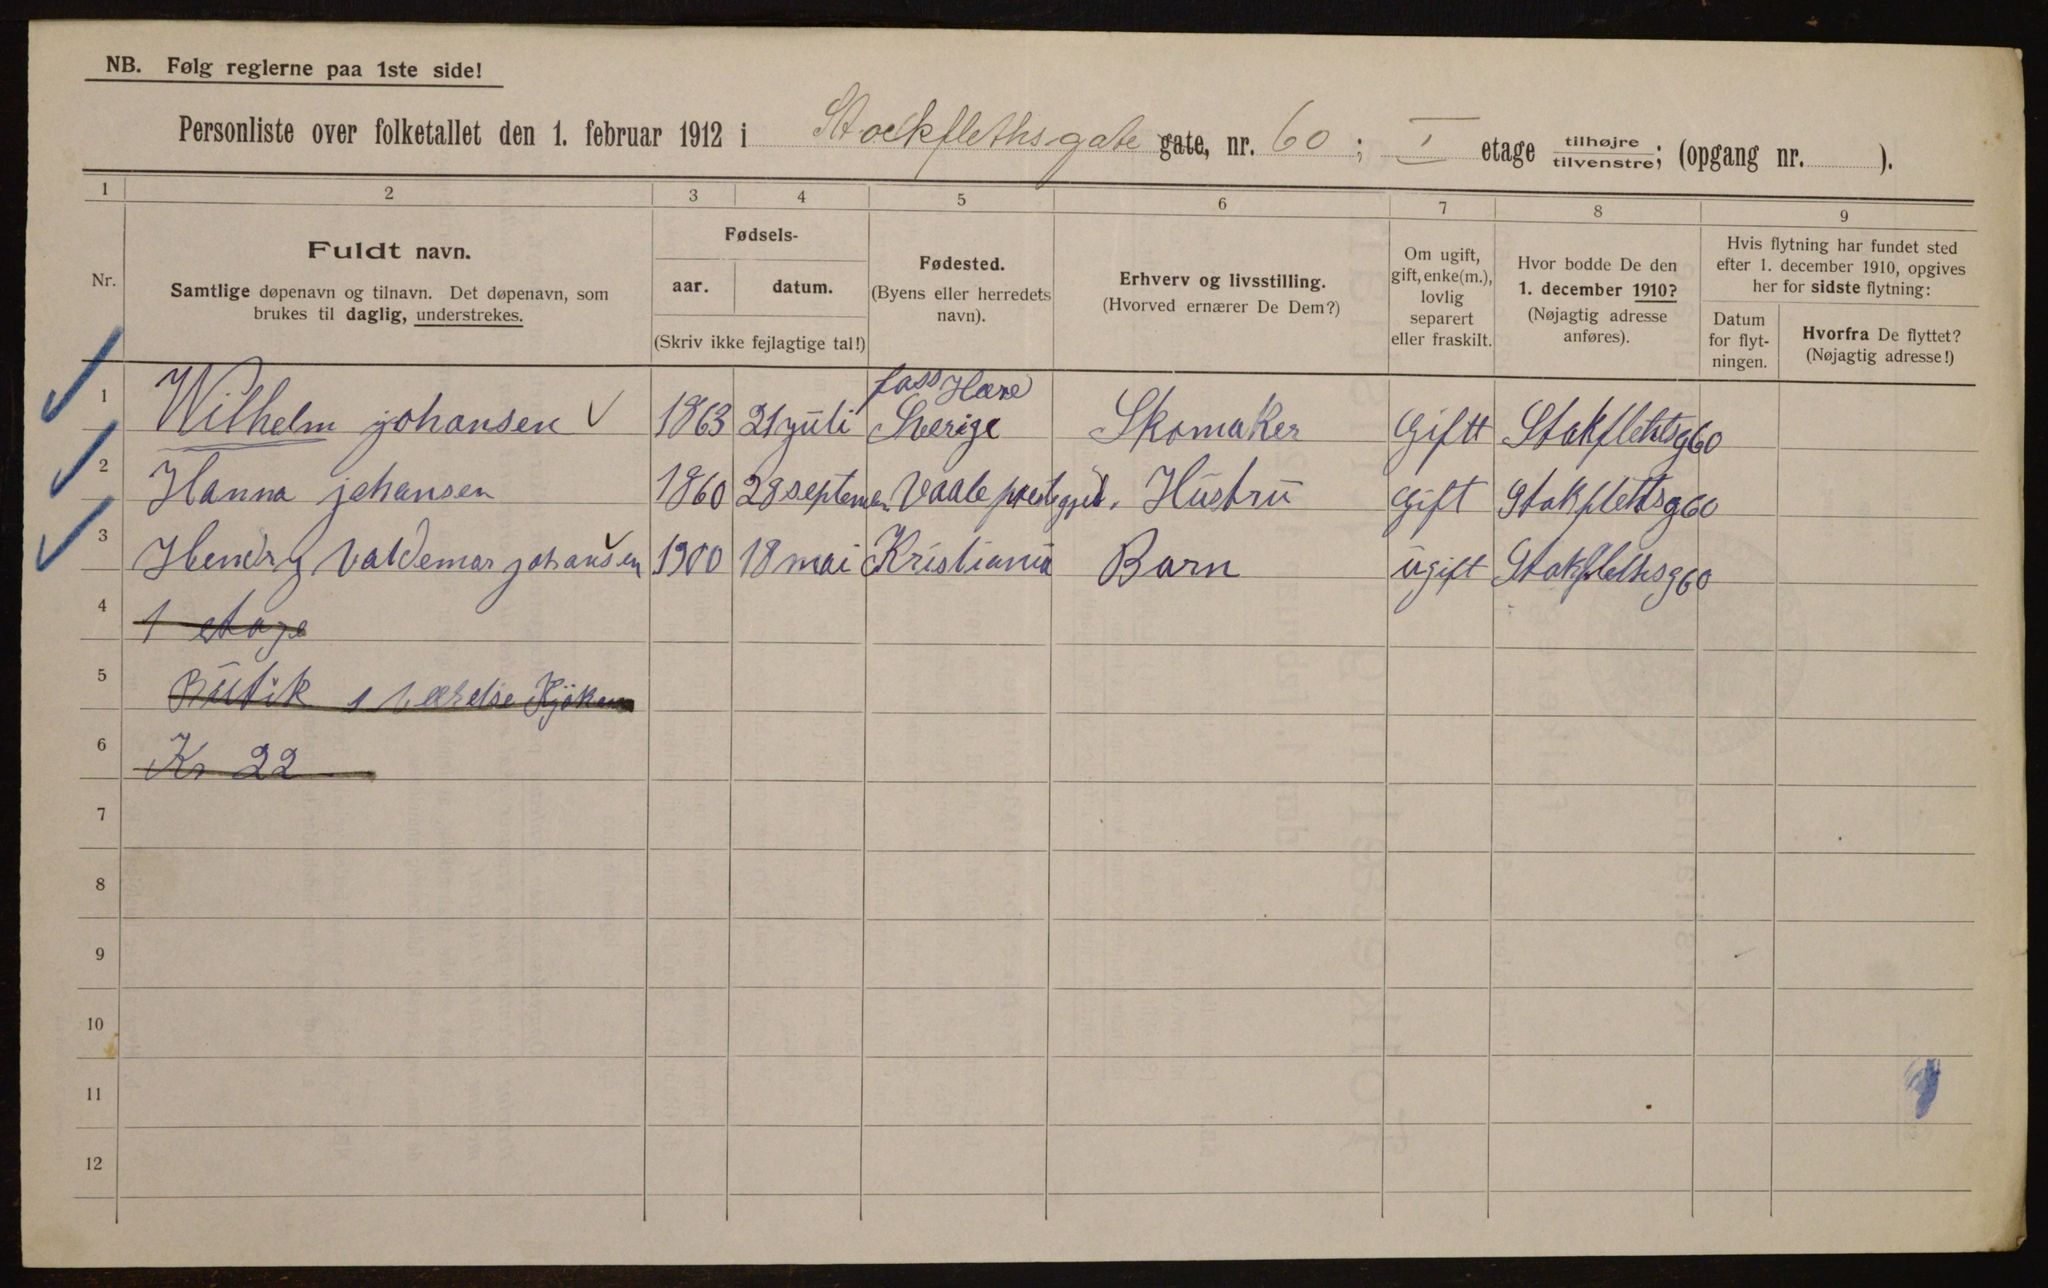 NB. Følg reglerne paa 1ste side!
Personliste over folketallet den 1. februar 1912 i Stockflethsgate gate, nr. 60; I etage tilhøjre/tilvenstre; (opgang nr. ).
1 2 3 4 5 6 7 8 9
Nr.
Fuldt navn.
Samtlige døpenavn og tilnavn. Det døpenavn, som
brukes til daglig, understrekes.
Fødsels-
aar. datum.
(Skriv ikke fejlagtige tal!)
Fødested.
(Byens eller herredets
navn).
Erhverv og livsstilling.
(Hvorved ernærer De Dem?)
Om ugift,
gift, enke(m.),
lovlig
separert
eller fraskilt.
Hvor bodde De den
1. december 1910?
(Nøjagtig adresse
anføres).
Hvis flytning har fundet sted
efter 1. december 1910, opgives
her for sidste flytning:
Datum
for flyt-
ningen.
Hvorfra De flyttet?
(Nøjagtig adresse!)
1 Wilhelm johansen 1863 21 juli Sverige Skomaker Gift Stokflehtsg60
2 Hanna johansen 1860 28 septemen Vaale Hustru Gift Stokflehtsg60
3 Hendry Valdemar johansen 1900 18 mai Kristiania Barn ugift Stokflethsg60
4 1 etage
5 Butik 1 Værelse Kjøken
6 Kr 22
7
8
9
10
11
12